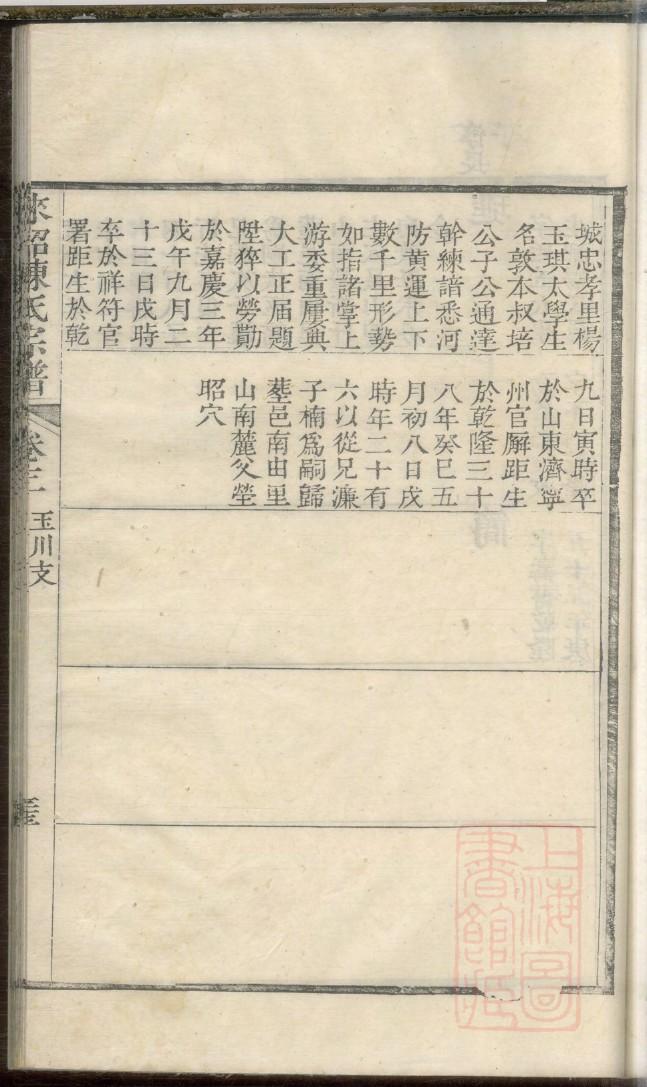 城忠孝里楊
玉琪太學生
名敦本叔培
公子公通達
幹練諳悉河
防黃運上下
數千里形勢
如指諸掌上
游委重屢典
大工正届題
陞猝以勞勩
於嘉慶三年
戊午九月二
十三日戌時
卒於祥符官
署距生於乾
九日寅時卒
於山東濟寧
州官廨距生
於乾隆三十
八年癸巳五
月初八日戌
時年二十有
六以從兄濂
子楠爲嗣歸
塟邑南由里
山南麓父塋
昭穴
陳氏宗譜
卷三
玉川支
上海圖書館藏